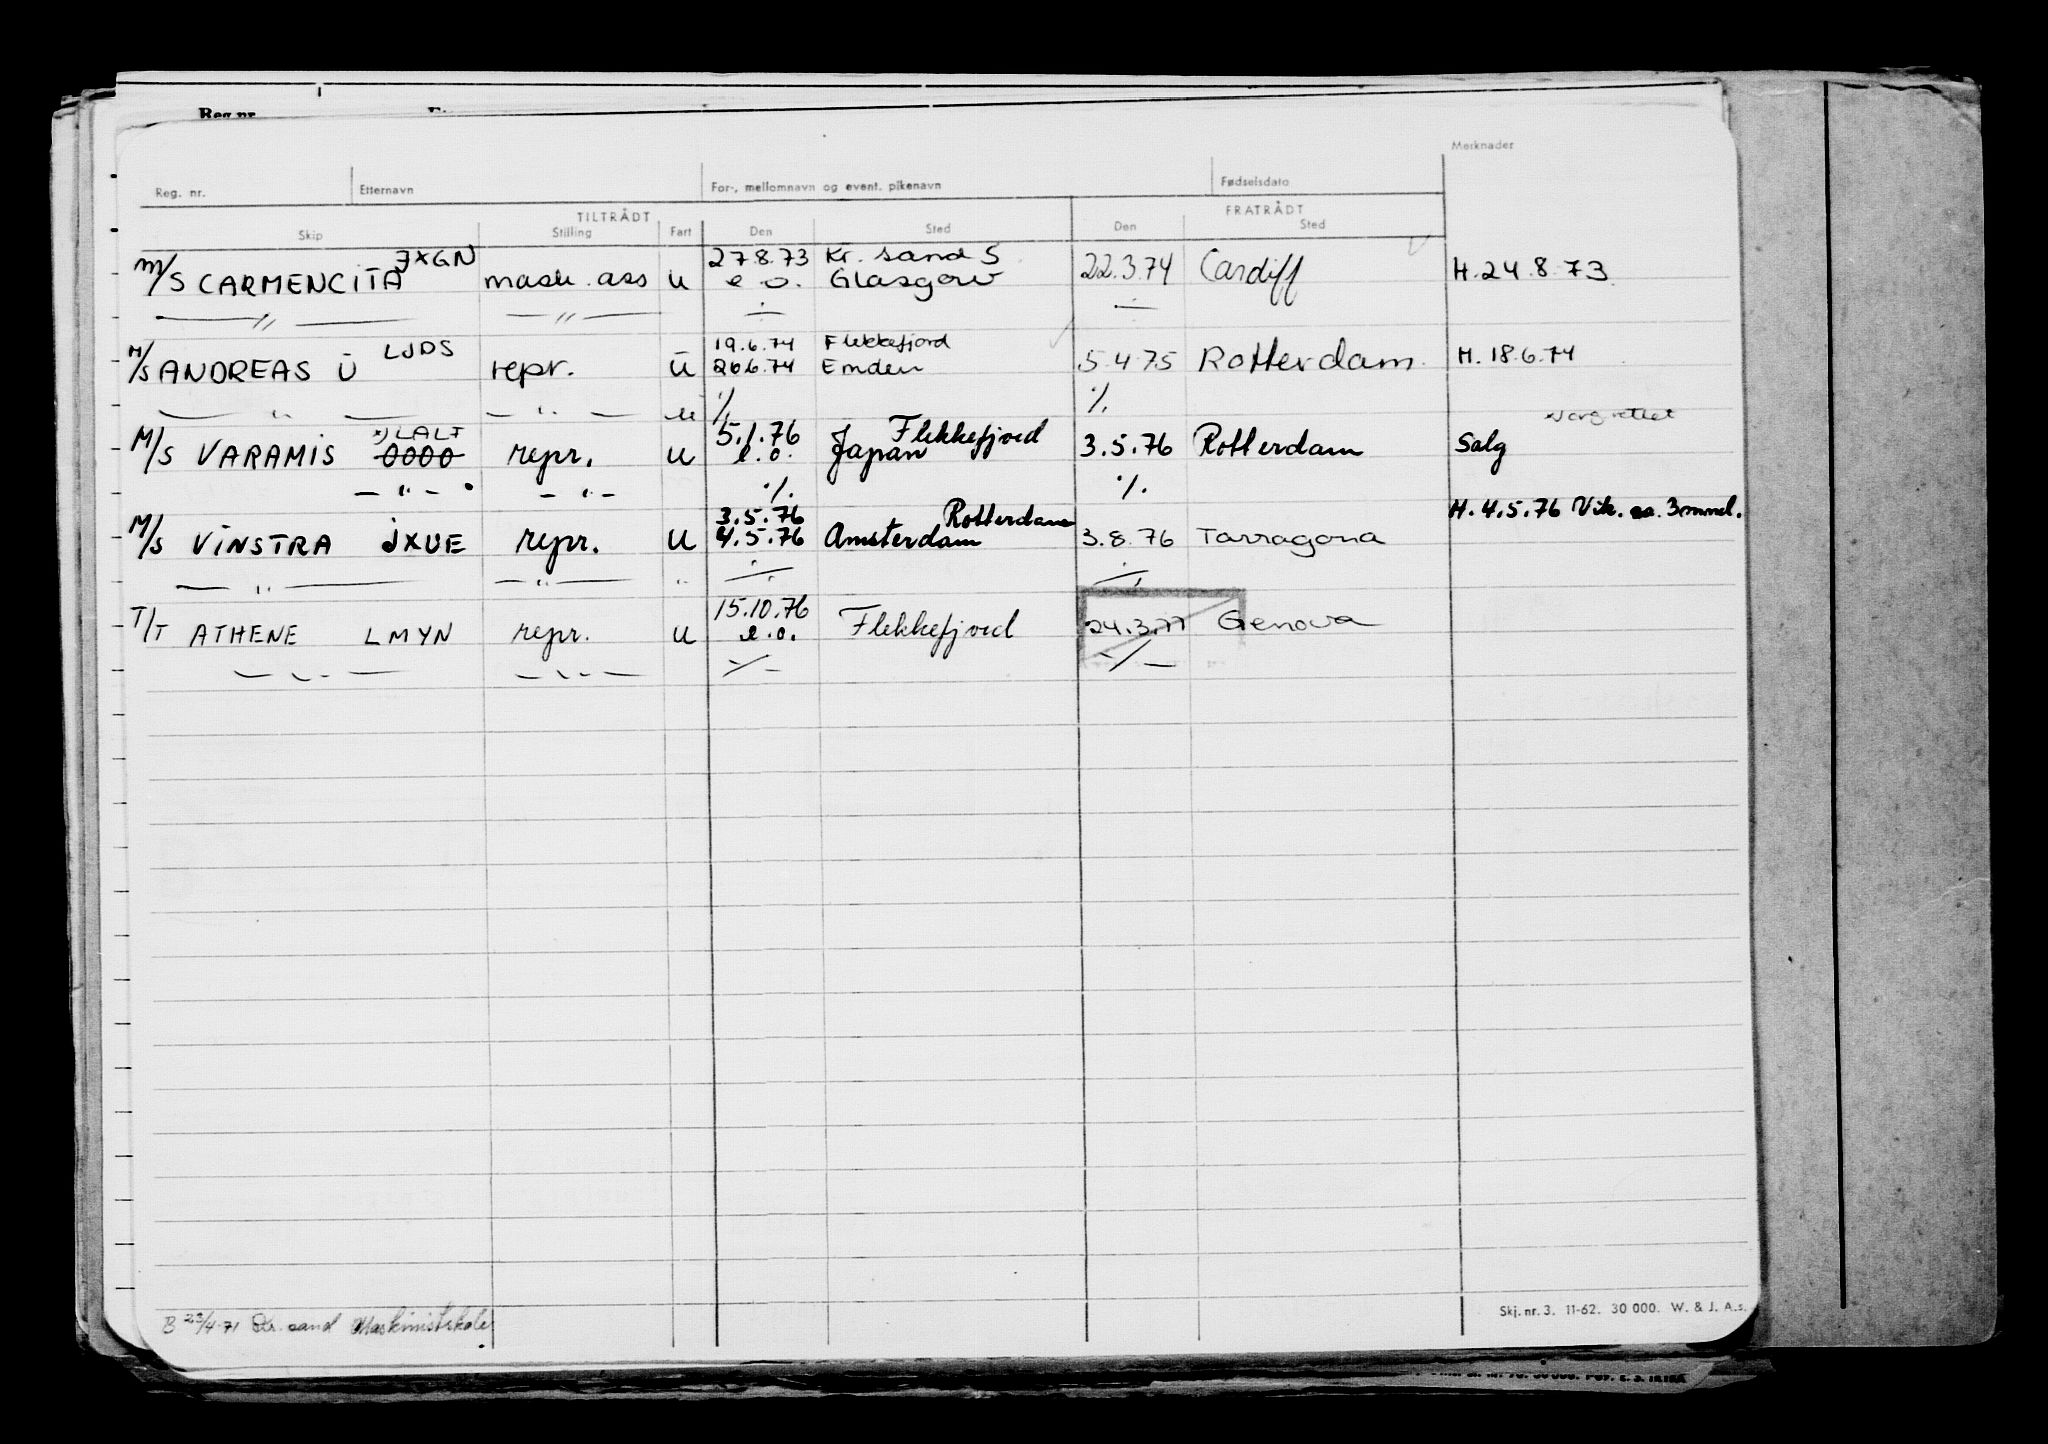 Reg. nr.
Merknader
Reg. nr. Etternavn For-, mellomnavn og event. pikenavn Fødselsdato
TILTRÅDT FRATRÅDT
Skip Stilling Fart Den Sted Den Sted
JXGN 27.8.73 Kr. sand S
M/S CARMENCITA mask. ass u e.o. Glasgow 22.3.74 Cardiff H. 24.8.73
— " — — " — ÷ ÷
LJDS 19.6.74 Flekkefjord
M/S ANDREAS U repr. u 26.6.74 Emden 5.4.75 Rotterdam H. 18.6.74
— " — — " — u ./. ./.
x) LALT 5.1.76 Flekkefjord
M/S VARAMIS 0000 repr. u e.o. Japan 3.5.76 Rotterdam Salg
— " — — " — ./. ./.
3.5.76 Rotterdam H. 4.5.76 Vik. ca. 3 mnd.
M/S VINSTRA JXUE repr. u 4.5.76 Amsterdam 3.8.76 Tarragona
— " — — " — " ./. ./.
15.10.76
T/T ATHENE LMYN repr. u e.o. Flekkefjord 24.3.77 Genova
— " — — " — -/- -/-
B 23/4-71 Kr. sand Maskinistskole
Skj. nr. 3. 11-62. 30 000. W. & J. A.s.